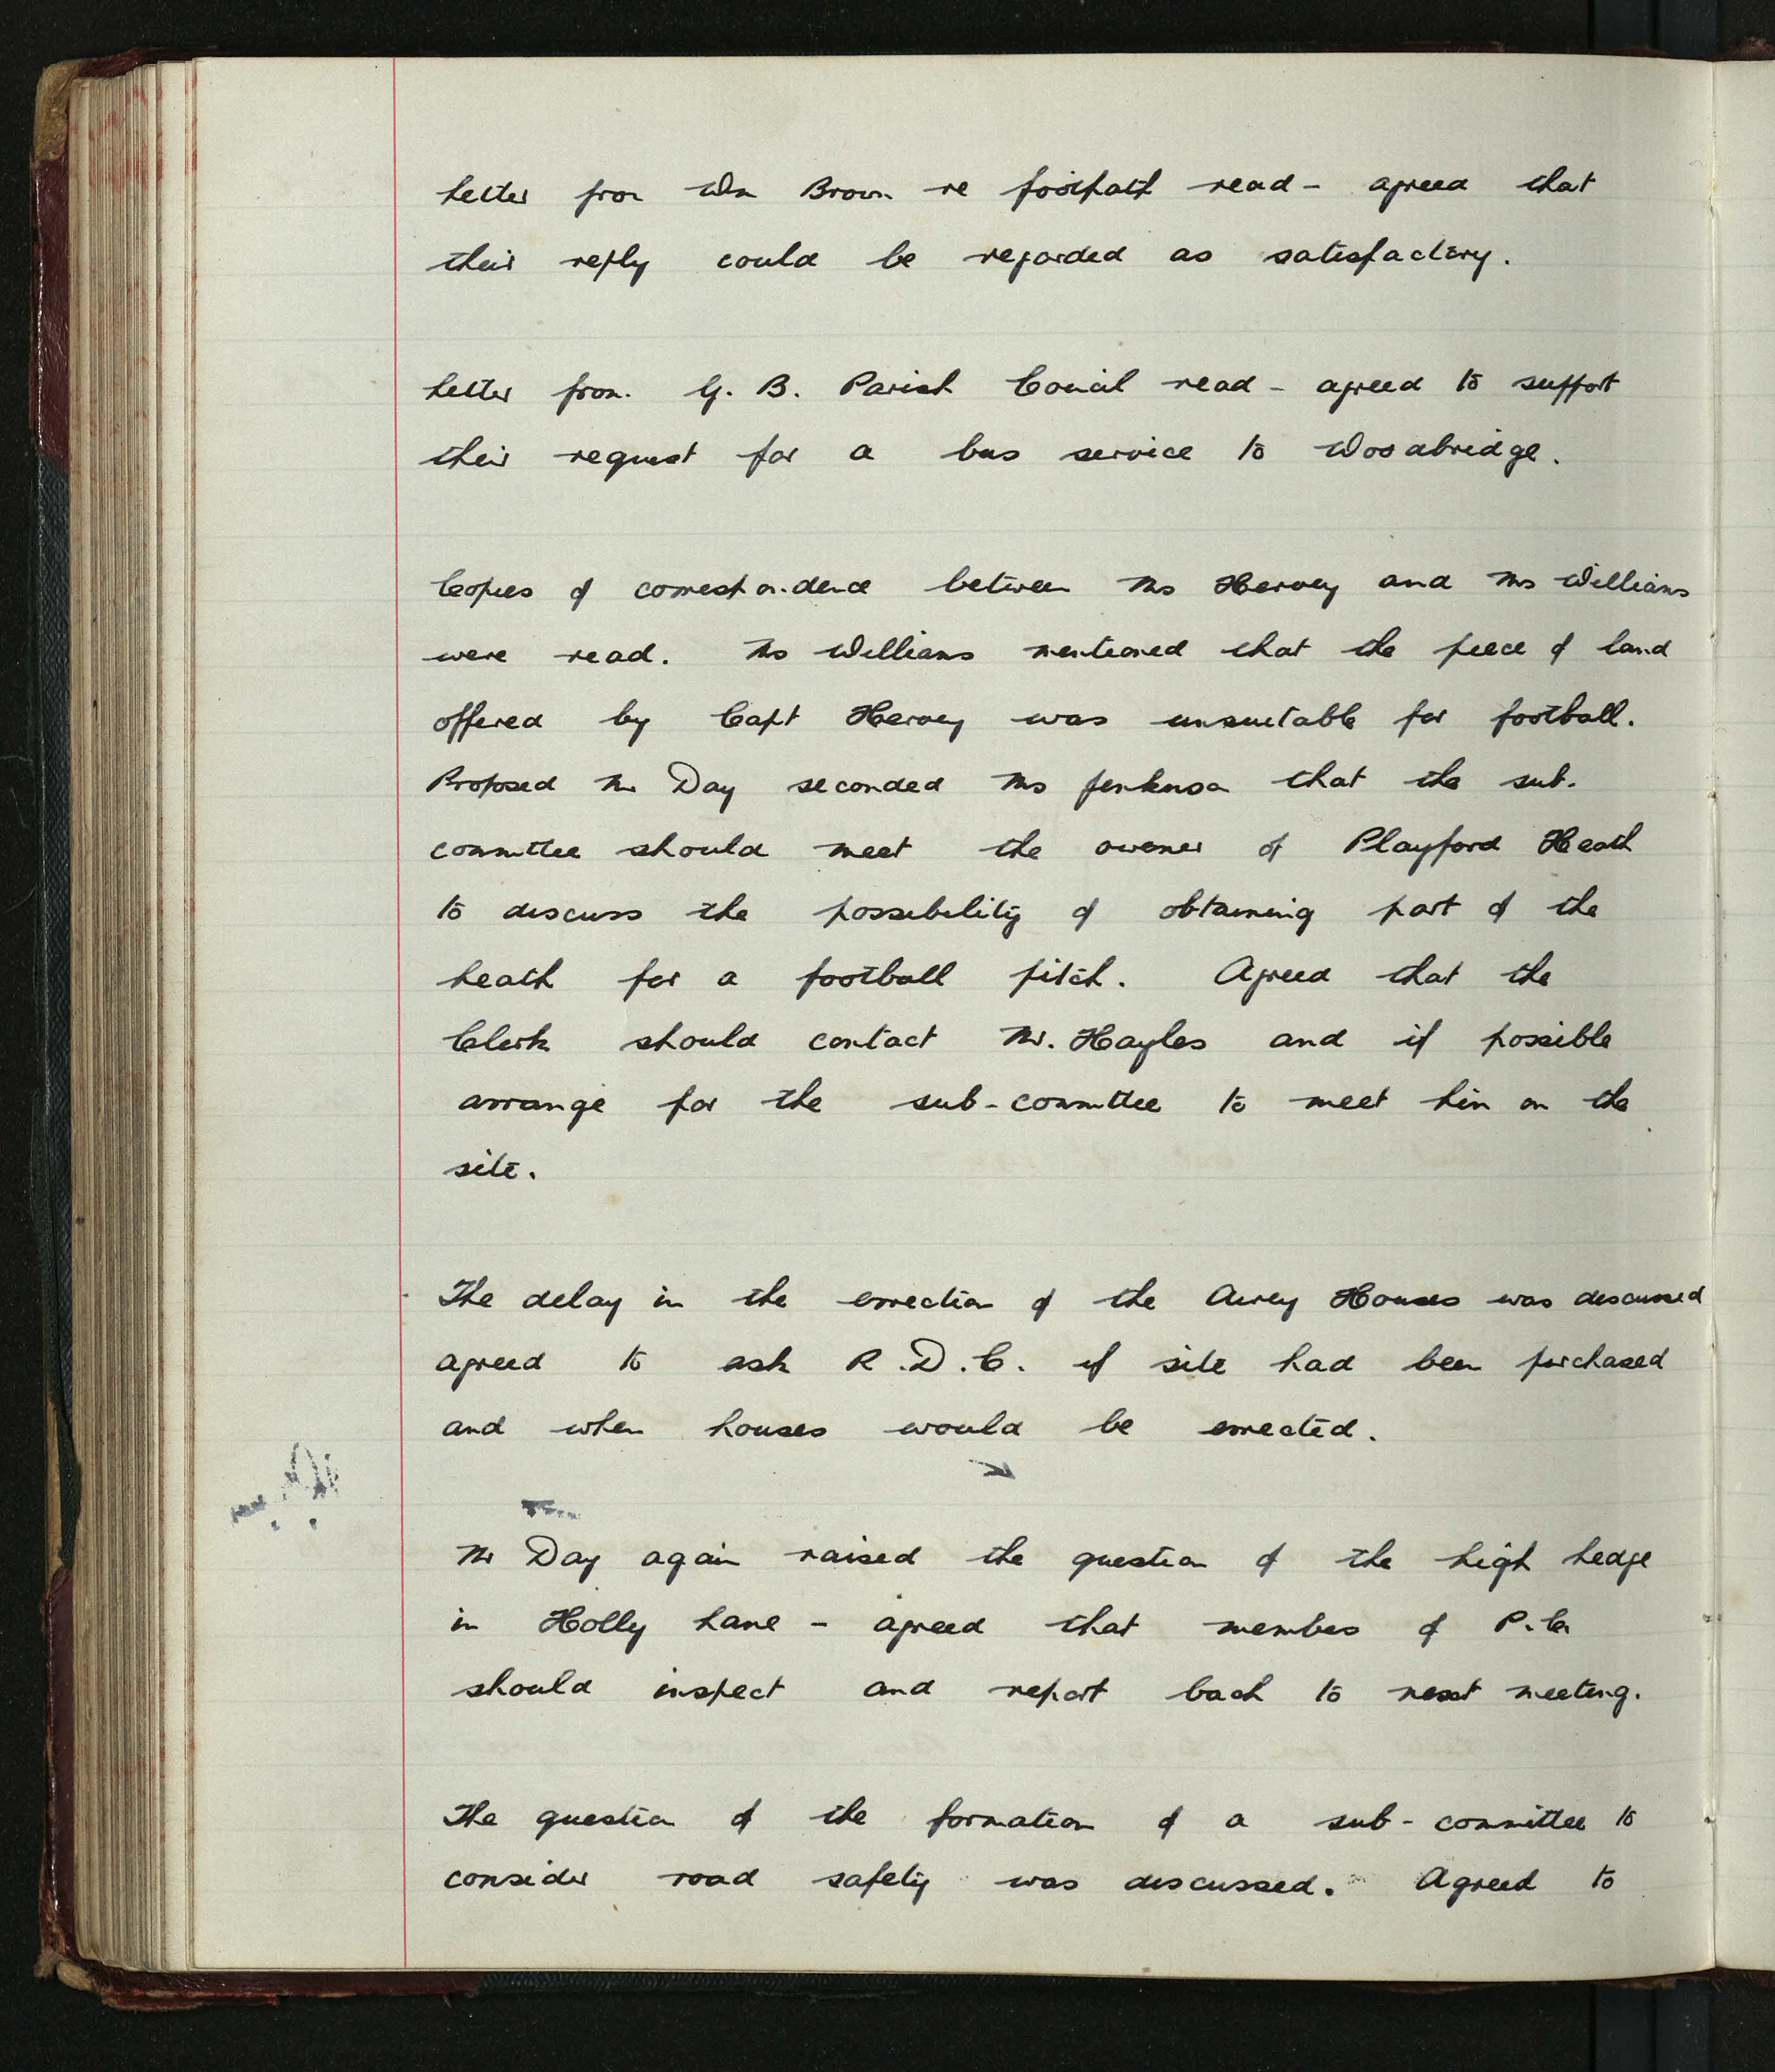 Letter from Wm Brown re footpath read - agreed that
their reply could be regarded as satisfactory.
Letter from G. B. Parish Council read - agreed to support
their request for a bus service to Woodbridge.
Copies of correspondence between Mrs Hervey and Mrs Williams
were read. Mrs Williams mentioned that the piece of land
offered by Capt Hervey was unsuitable for football.
Proposed Mr Day seconded Mrs Jenkinson that the sub-
committee should meet the owner of Playford Heath
to discuss the possibility of obtaining part of the
heath for a football pitch. Agreed that the
Clerk should contact Mr. Hayles and if possible
arrange for the sub-committee to meet him on the
site.
The delay in the errection of the Airey Houses was discussed
agreed to ask R.D.C. if site had been purchased
and when houses would be errected.
Mr Day again raised the question of the high hedge
in Holly Lane - agreed that members of P.C.
should inspect and report back to next meeting.
The question of the formation of a sub-committee to
consider road safety was discussed. Agreed to